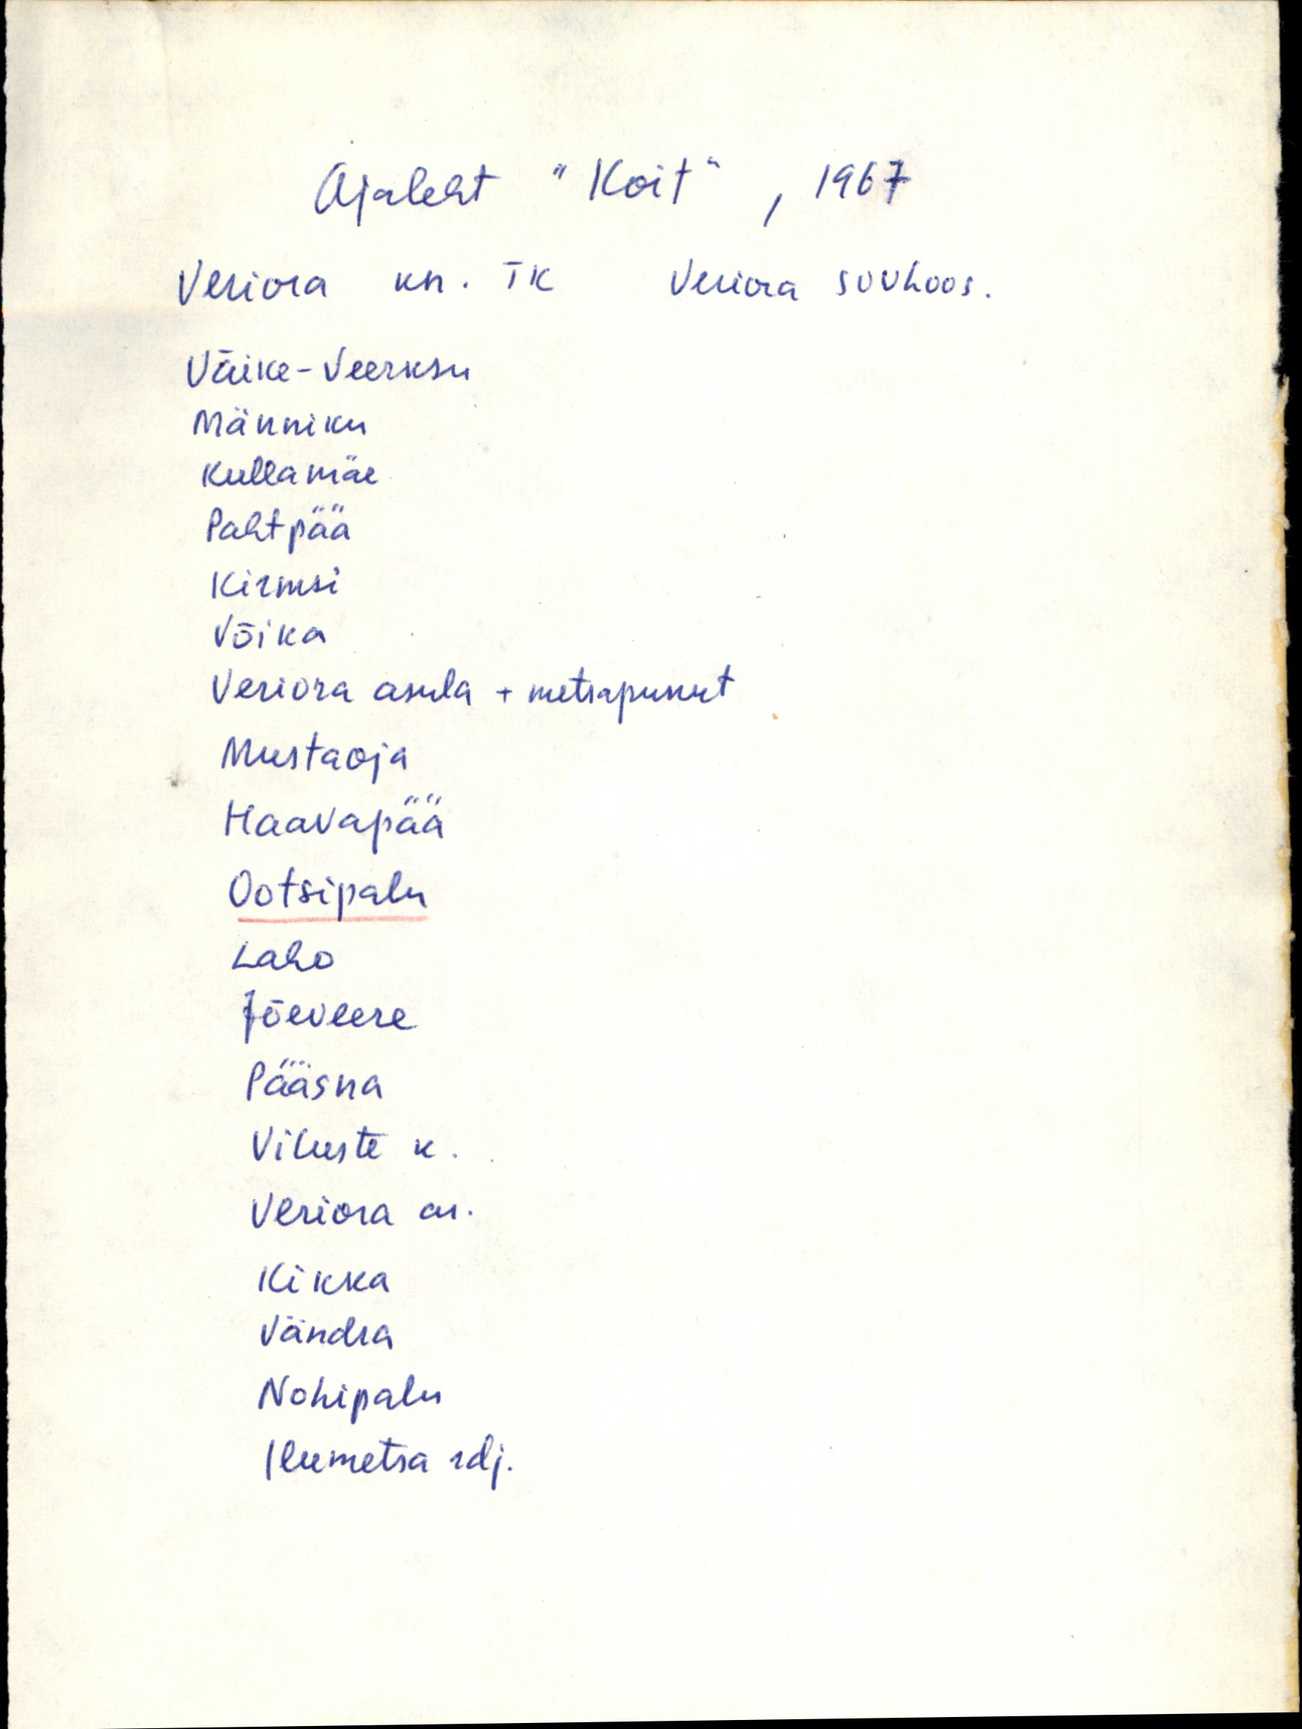 Ajaleht "Koit", 1967
Veriora kn. TK Veriora sovhoos.
Väike-Veerksu
Männiku
Kullamäe
Pahtpää
Kirmsi
Võika
Veriora asula + metsapunkt
Mustaoja
Haavapää
Ootsipalu
Laho
Jõeveere
Pääsna
Viluste k.
Veriora as.
Kikka
Vändra
Nohipalu
Ilumetsa rdj.